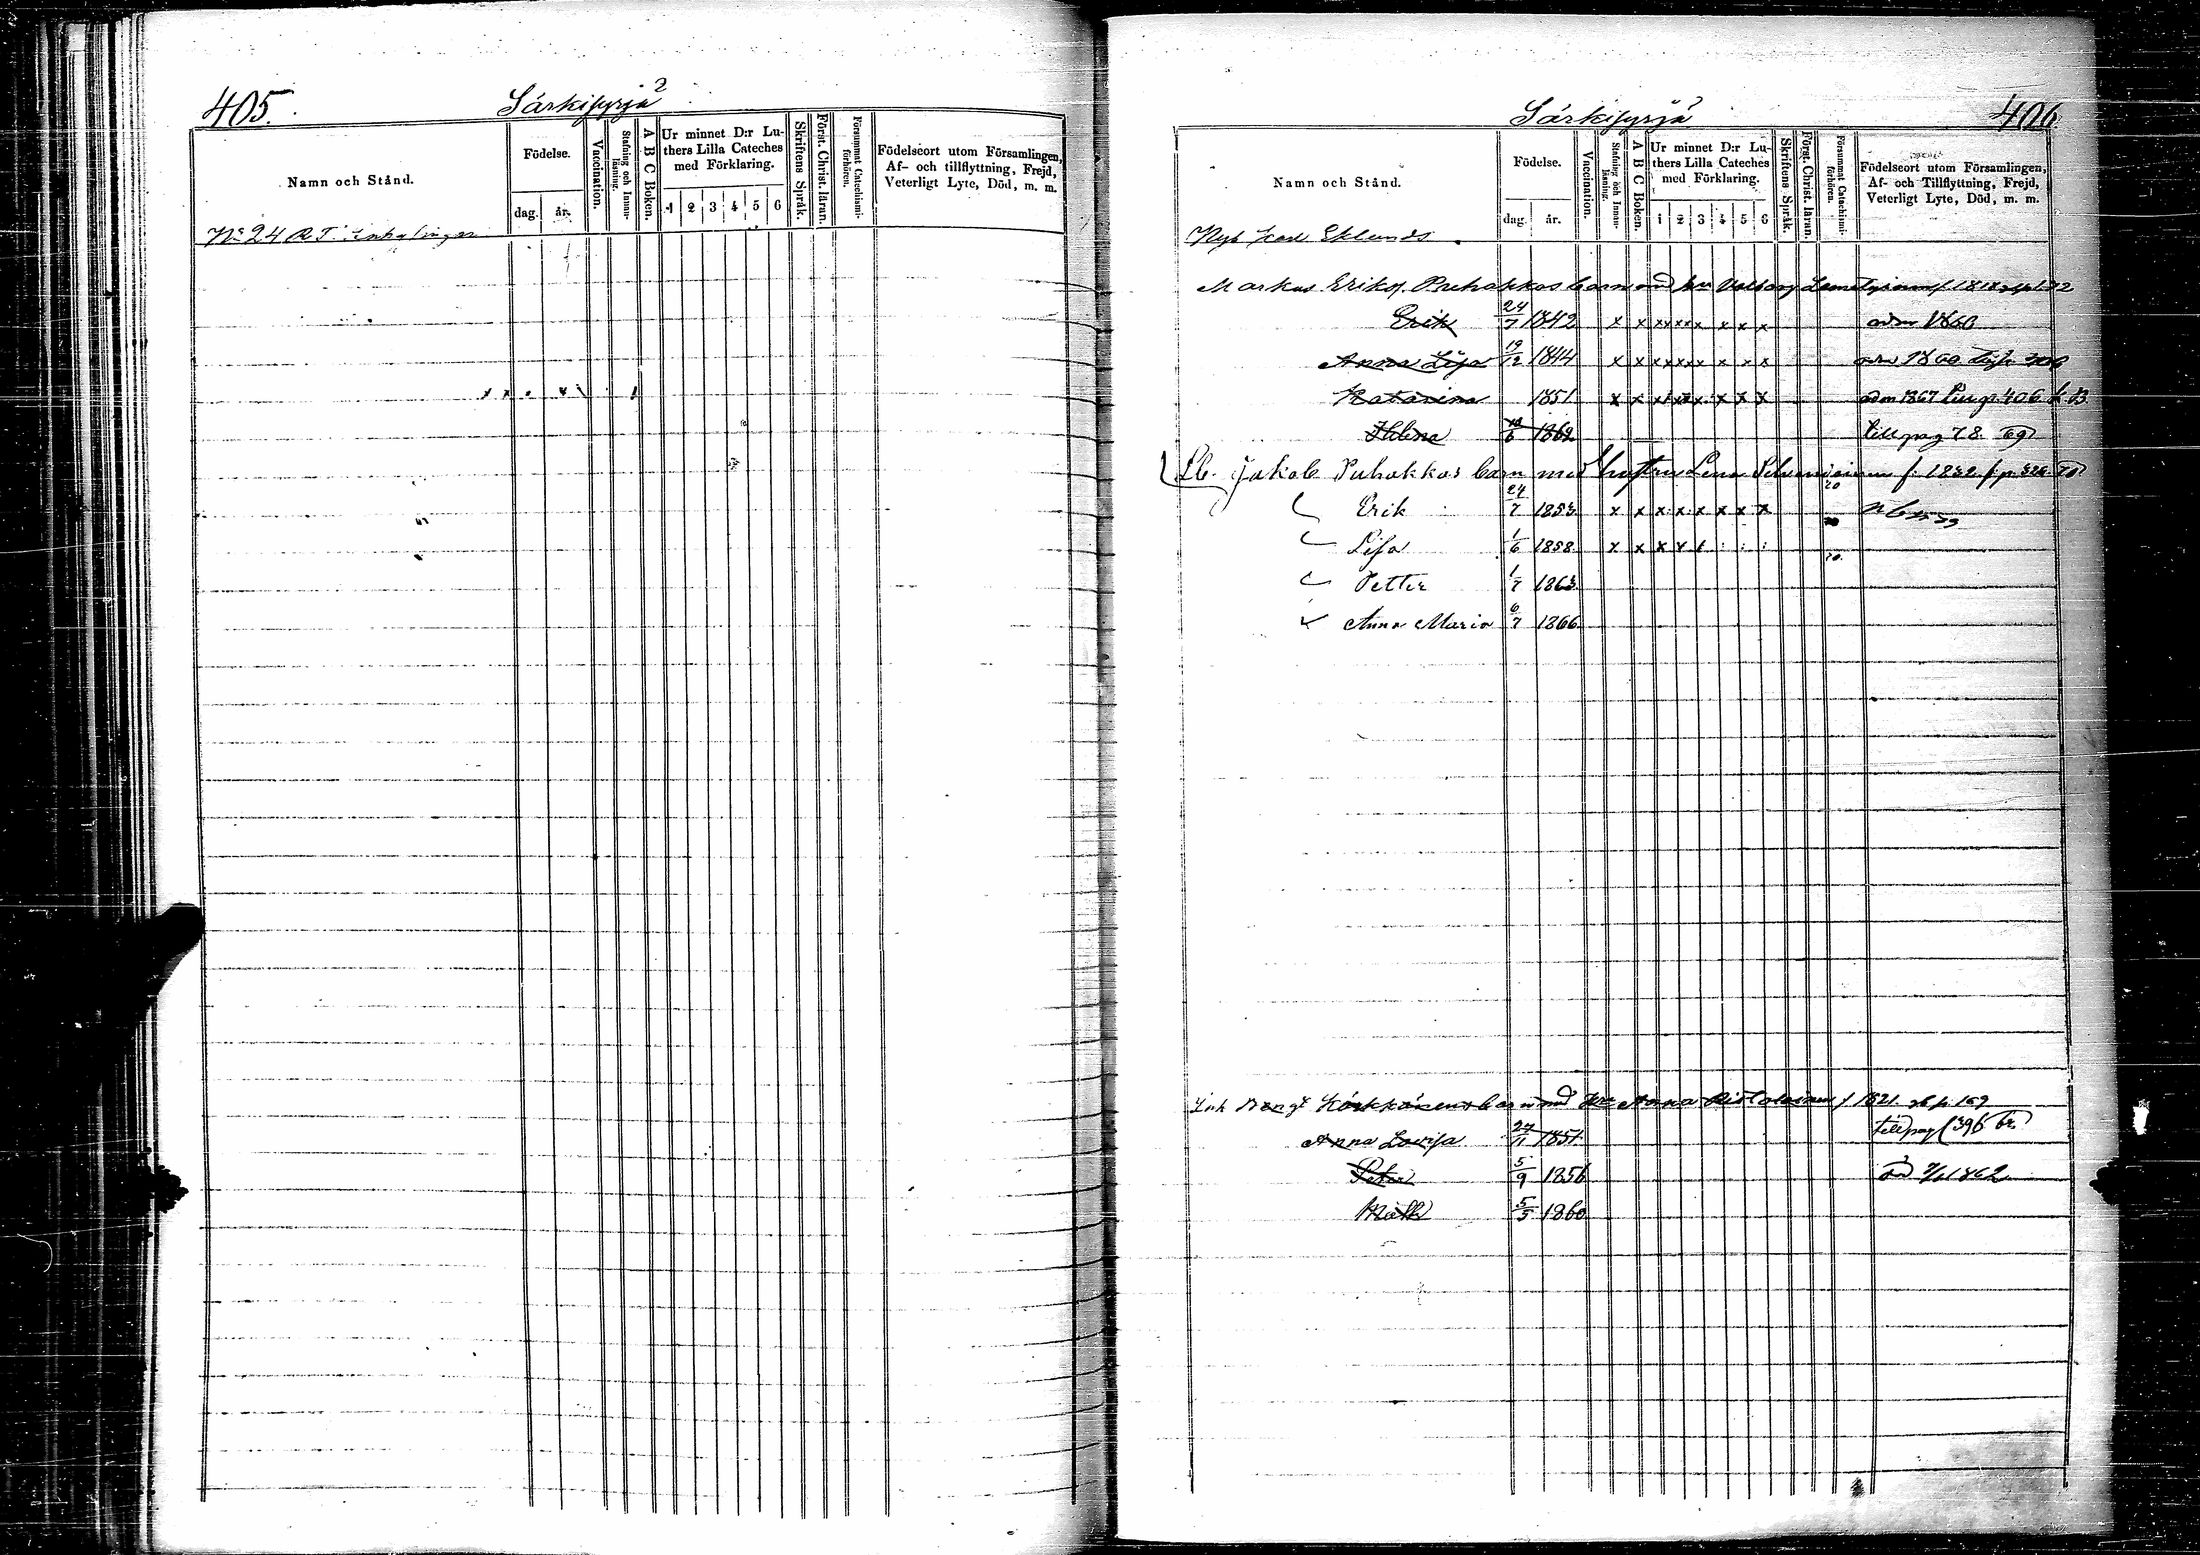 405.
Särkisyrjä
Namn och Stånd.
Födelse.
dag.
år.
Vaccination.
Stafning och Innan-läsning.
A B C Boken.
Ur minnet D:r Lu-
thers Lilla Cateches
med Förklaring.
1 2 3 4 5 6
Skriftens Språk.
Först. Christ. läran.
Försummat Catechismi-förhören.
Födelseort utom Församlingen,
Af- och tillflyttning, Frejd,
Veterligt Lyte, Död, m. m.
No 24 R. T.
Särkisyrjä
406
Namn och Stånd.
Födelse.
dag.
år.
Vaccination.
Stafning och Innan-läsning.
A B C Boken.
Ur minnet D:r Lu-
thers Lilla Cateches
med Förklaring.
1 2 3 4 5 6
Skriftens Språk.
Först. Christ. läran.
Försummat Catechismi-förhören.
Födelseort utom Församlingen,
Af- och Tillflyttning, Frejd,
Veterligt Lyte, Död, m. m.
Nyb Karl Eklunds
Markus Eriks. Puhakkas barn med hu Valborg f. 1818
Erik 24/7 1842 x x x x x x x x x adm 1860
Anna Lisa 19/12 1844 x x x x x x x x x adm 1860
Katarina 1851 x x x x x x x x adm 1867 406
Helena 10/6 1862 till pag 78. 69
Lb. Jakob Puhakkas barn med hustru Lena f. 1832 f. p. 326. 70
Erik 24/7 1853 x x x x x x x x 20
Lisa 1/6 1858 x x x x
Petter 1/7 1863 70.
Anna Maria 6/7 1866
Inh Bengt barn med Hu Anna f 1821 p. 169
Anna Lovisa 24/11 1851 till pag (396 br.)
Peter 5/9 1856 1862
5/5 1860